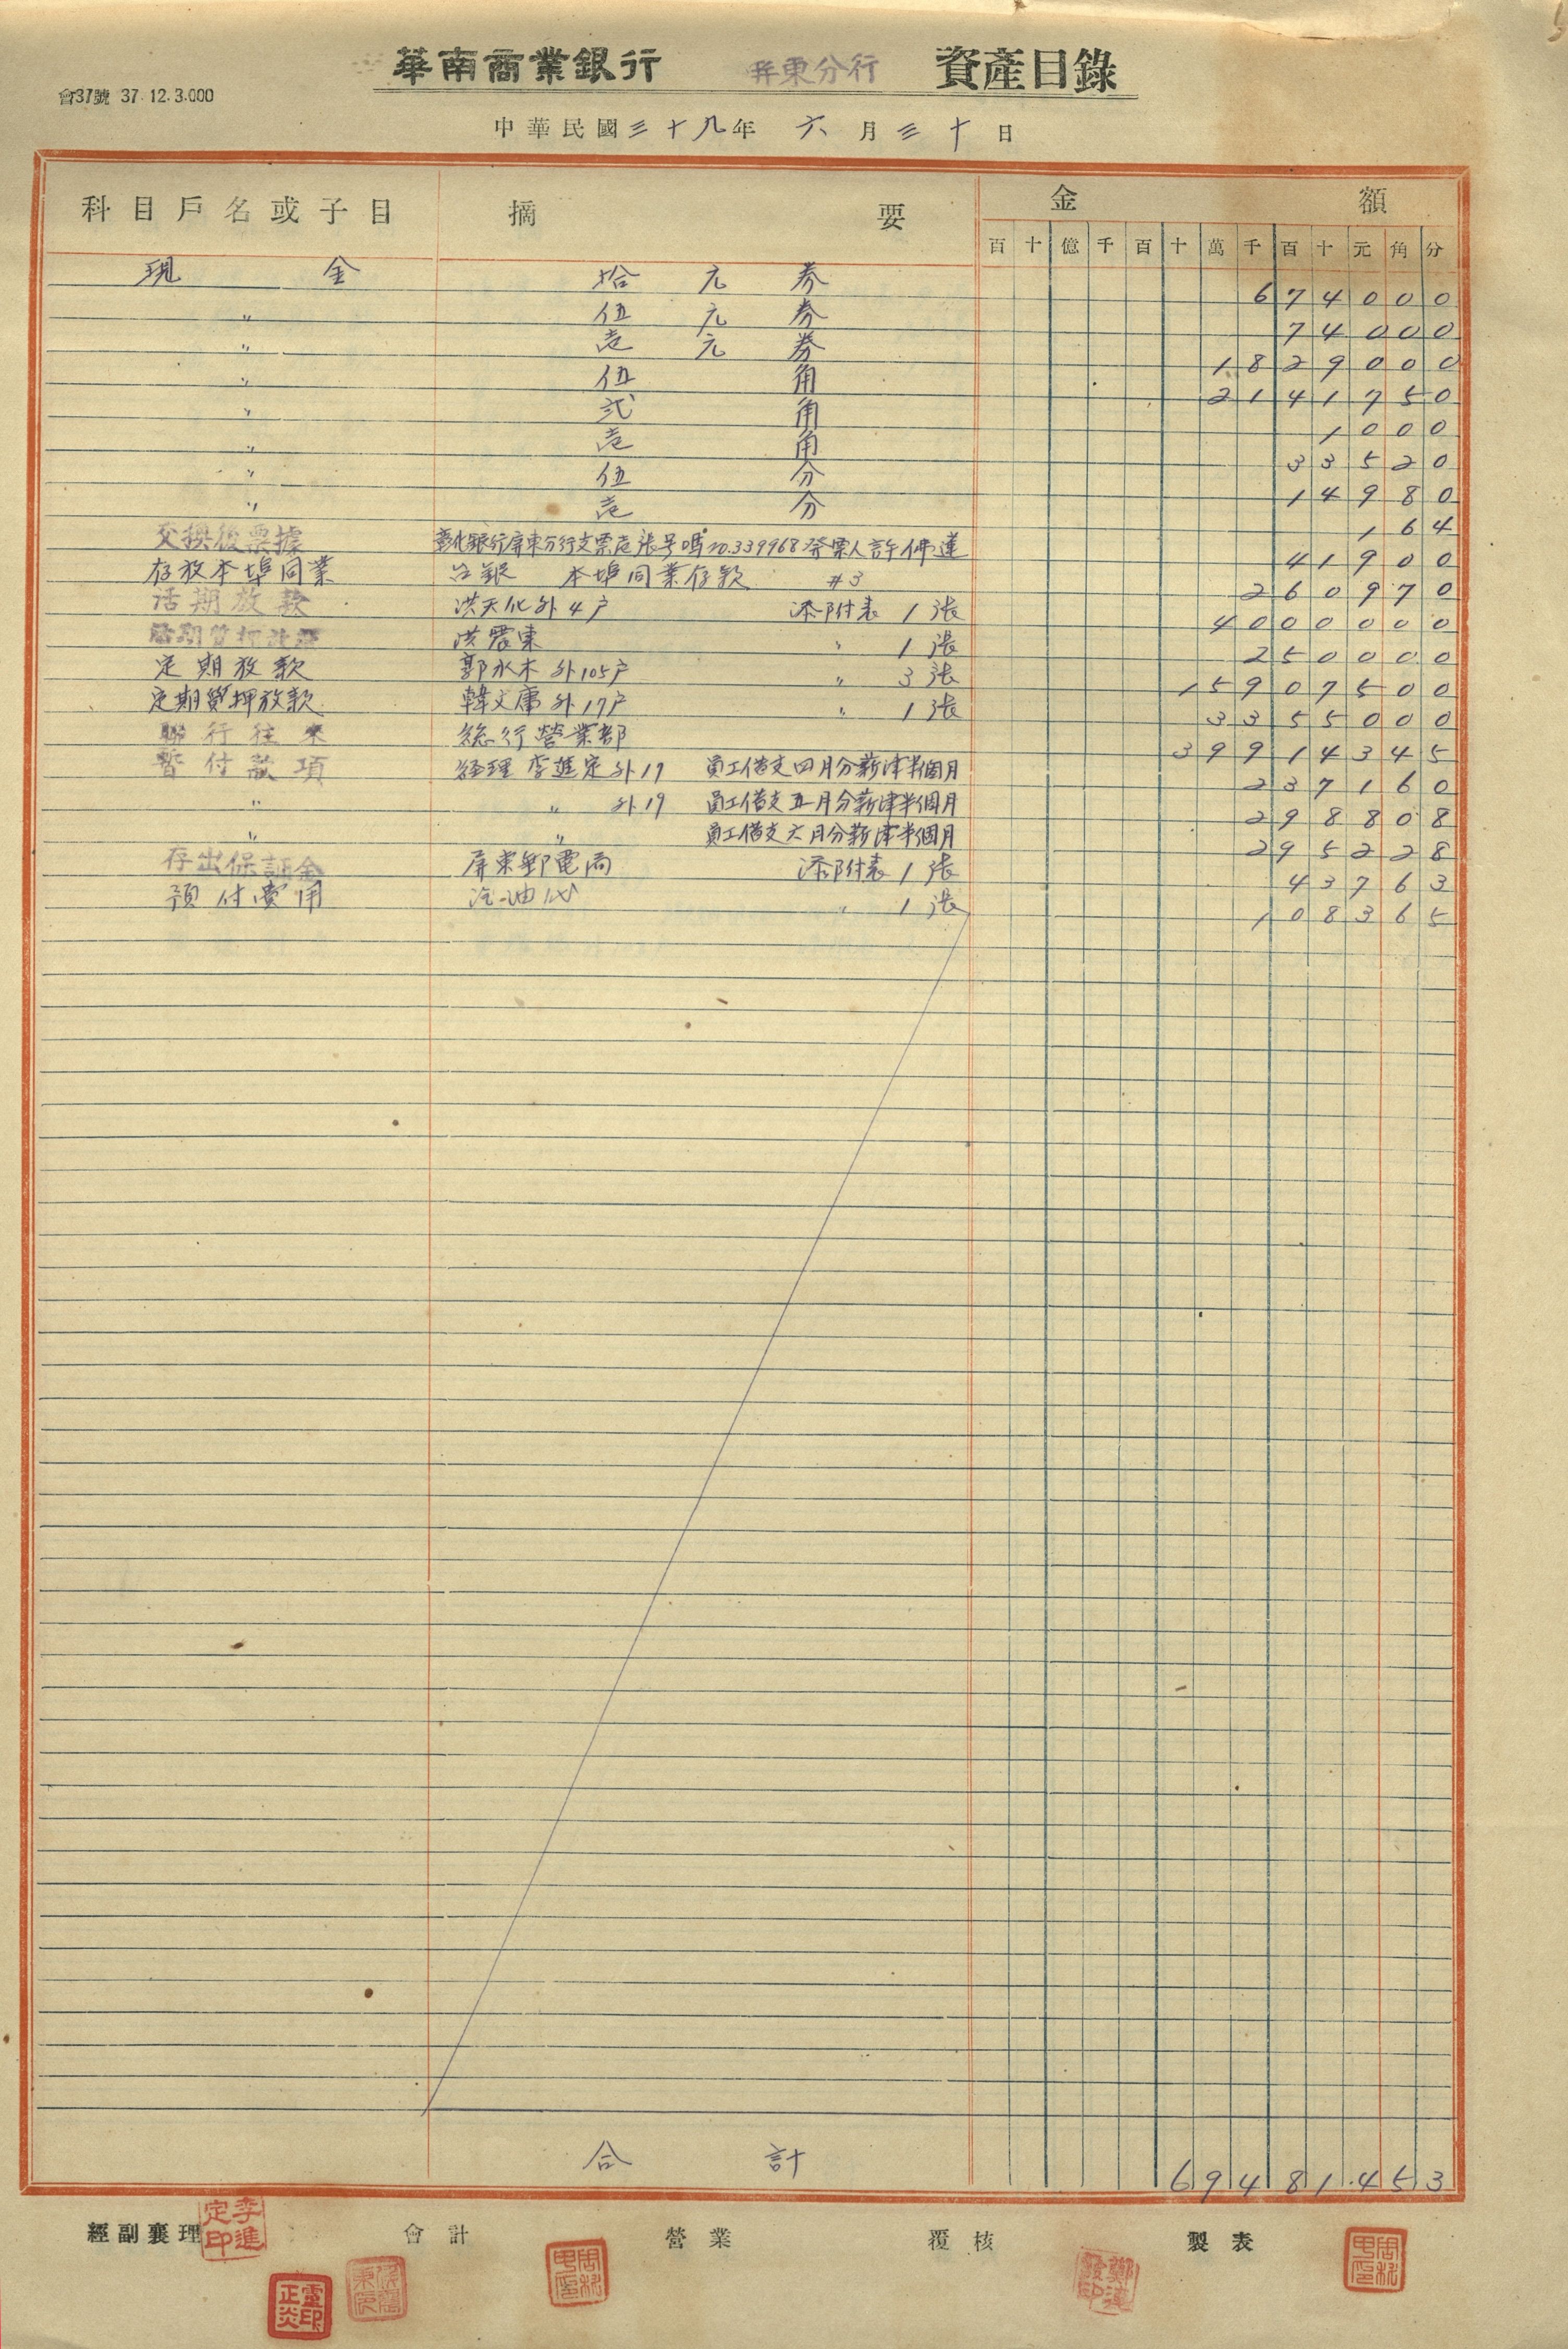 華南商業銀行 屏東分行 資產目錄
會37號 37.12.3.000
中華民國三十九年 六月三十日
科目戶名或子目 摘要 金額
百 十 億 千 百 十 萬 千 百 十 元 角 分
現金 拾元券 6 7 4 0 0 0
〃 伍元券 7 4 0 0 0
〃 壱元券 1 8 2 9 0 0 0
〃 伍角 2 1 4 1 7 5 0
〃 弍角 1 0 0 0
〃 壱角 3 3 5 2 0
〃 伍分 1 4 9 8 0
〃 壱分 1 6 4
交換後票據 彰化銀行屏東分行支票壱張号嗎no.339968発票人許 4 1 9 0 0
存放本埠同業 台銀 本埠同業存款 #3 2 6 0 9 7 0
活期放款 洪天化外4户 添附表 1張 4 0 0 0 0 0 0
活期質押放款 洪震東 〃 1張 2 5 0 0 0 0
定期放款 郭水木外105户 〃 3張 1 5 9 0 7 5 0 0
定期質押放款 韓文庸外17户 〃 1張 3 3 5 5 0 0 0
聯行往來 総行營業部 3 9 9 1 4 3 4 5
暫付款項 経理 李進定外19 員工借支四月分薪津半個月 2 3 7 1 6 0
〃 〃 外19 員工借支五月分薪津半個月 2 9 8 8 0 8
〃 〃 員工借支六月分薪津半個月 2 9 5 2 2 8
存出保証金 屏東郵電局 添附表 1張 4 3 7 6 3
預付費用 汽油代 〃 1張 1 0 8 3 6 5
合計 6 9 4 8 1 4 5 3
經副襄理 會計 營業 覆核 製表
李進定印